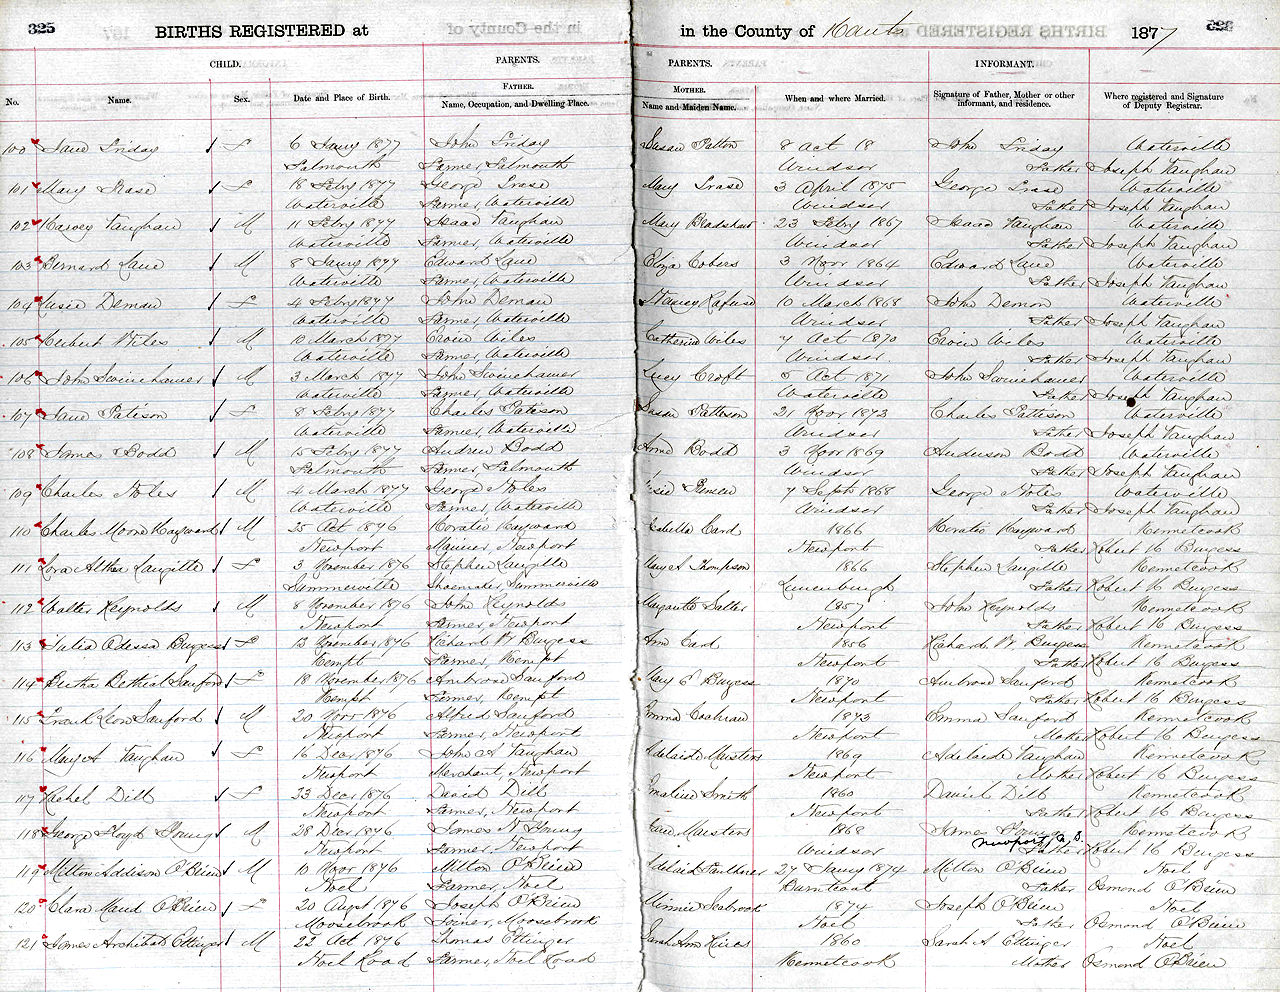 325 BIRTHS REGISTERED at in the County of Hants 1877
CHILD. PARENTS. PARENTS. INFORMANT.
FATHER. MOTHER.
No. Name. Sex. Date and Place of Birth. Name, Occupation, and Dwelling Place. Name and Maiden Name. When and where Married. Signature of Father, Mother or other informant, and residence. Where registered and Signature of Deputy Registrar.
100 Jane Friday F 6 Jany 1877 John Friday Susan Patton 8 Oct 18 John Friday Waterville
Falmouth Farmer, Falmouth Windsor Father Joseph Vaughan
101 Mary F 18 Feby 1877 George Mary 3 April 1875 George Waterville
Waterville Farmer, Waterville Windsor Father Joseph Vaughan
102 Harvey Vaughan M 11 Feby 1877 Isaac Vaughan Mary Bradshaw 23 Feby 1867 Isaac Vaughan Waterville
Waterville Farmer, Waterville Windsor Father Joseph Vaughan
103 Bernard Lane M 8 Jany 1877 Edward Lane Eliza Cobers 3 Nov 1864 Edward Lane Waterville
Waterville Farmer, Waterville Windsor Father Joseph Vaughan
104 Susie Deman F 4 Feby 1877 John Deman Nancy Rafuse 10 March 1868 John Demon Waterville
Waterville Farmer, Waterville Windsor Father Joseph Vaughan
105 Herbert Wiles M 10 March 1877 Ervin Wiles Catherine Wiles 7 Oct 1870 Ervin Wiles Waterville
Waterville Farmer, Waterville Windsor Father Joseph Vaughan
106 John Swinehamer M 3 March 1877 John Swinehamer Lucy Croft 5 Oct 1871 John Swinehamer Waterville
Waterville Farmer, Waterville Waterville Father Joseph Vaughan
107 Jane Patison F 8 Feby 1877 Charles Patison Susan Pattison 21 Nov 1873 Charles Pattison Waterville
Waterville Farmer, Waterville Windsor Father Joseph Vaughan
108 James Dodd M 15 Feby 1877 Andrew Dodd Anne Dodd 3 Nov 1869 Anderson Dodd Waterville
Falmouth Farmer, Falmouth Windsor Father Joseph Vaughan
109 Charles Noles M 4 March 1877 George Noles 7 Sept 1868 George Noles Waterville
Waterville Farmer, Waterville Windsor Father Joseph Vaughan
110 Charles Moore Hayward M 25 Oct 1876 Horatio Hayward Isabella Card 1866 Horatio Hayward Kennetcook
Newport Mariner, Newport Newport Father Robert H Burgess
111 Lora Althea Langille F 3 November 1876 Stephen Langille Mary A Thompson 1866 Stephen Langille Kennetcook
Summerville Shoemaker, Summerville Lunenburgh Father Robert H Burgess
112 Walter Reynolds M 8 November 1876 John Reynolds Margarette Salter 1857 John Reynolds Kennetcook
Newport Farmer, Newport Newport Father Robert H Burgess
113 Julia Odessa Burgess F 13 November 1876 Richard W Burgess Ann Card 1856 Richard W. Burgess Kennetcook
Kempt Farmer, Kempt Newport Father Robert H Burgess
114 Bertha Bethiah Sanford F 18 November 1876 Ambrose Sanford Mary E Burgess 1870 Ambrose Sanford Kennetcook
Kempt Farmer, Kempt Newport Father Robert H Burgess
115 Frank Leon Sanford M 20 Nov 1876 Alfred Sanford Emma Cochran 1873 Emma Sanford Kennetcook
Newport Farmer, Newport Newport Mother Robert H Burgess
116 Mary A Vaughan F 16 Dec, 1876 John A Vaughan Adelaide Masters 1869 Adelaide Vaughan Kennetcook
Newport Merchant, Newport Newport Mother Robert H Burgess
117 Rachel Dill F 23 Dec 1876 David Dill Emaline Smith 1860 David Dill Kennetcook
Newport Farmer, Newport Newport Father Robert H Burgess
118 George Floyd Young M 28 Dec 1876 James N Young Jane Masters 1868 James Young Kennetcook
Newport Farmer, Newport Windsor Newport Father Robert H Burgess
119 Milton Addison O'Brien M 10 Nov 1876 Milton O'Brien Adelaide Faulkner 27 Jany 1874 Milton O'Brien Noel
Noel Farmer, Noel Burntcoat Father Osmond O'Brien
120 Clara Maud O'Brien F 20 Augst 1876 Joseph O'Brien Minnie Seabrook 1874 Joseph O'Brien Noel
Moosebrook Joiner, Moosebrook Noel Father Osmond O'Brien
121 James Archibald Ettinger M 22 Oct 1876 Thomas Ettinger Sarah Ann Hines 1860 Sarah A Ettinger Noel
Noel Road Farmer, Noel Road Kennetcook Mother Osmond O'Brien